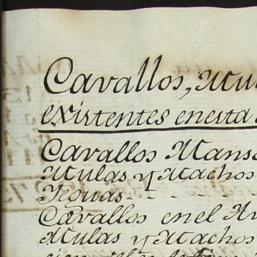 Cavallos, Mul
existentes enesta
Cavallos Mans
Mulas y Machos
Yeguas - - -
Cavallos en el
Mulas y Machos